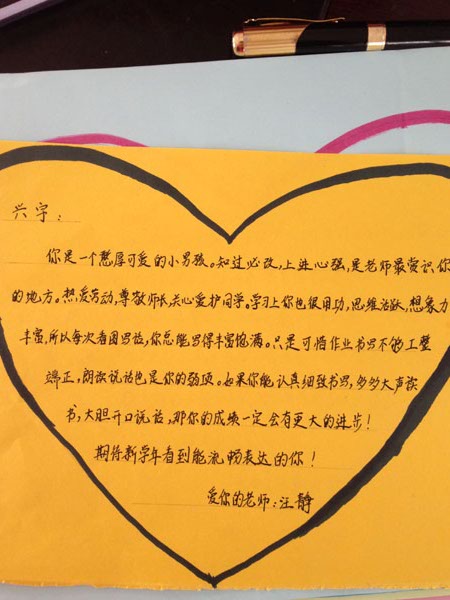 兴宇：
你是一个憨厚可爱的小男孩。知过必改，上进心强，是老师最赏识你
的地方。热爱劳动，尊敬师长，关心爱护同学。学习上你也很用功，思维活跃，想象力
丰富，所以每次看图写话，你总能写得丰富饱满。只是可惜作业书写不够工整
端正，朗读说话也是你的弱项。如果你能认真细致书写，多多大声读
书，大胆开口说话，那你的成绩一定会有更大的进步！
期待新学年看到能流畅表达的你！
爱你的老师：汪静